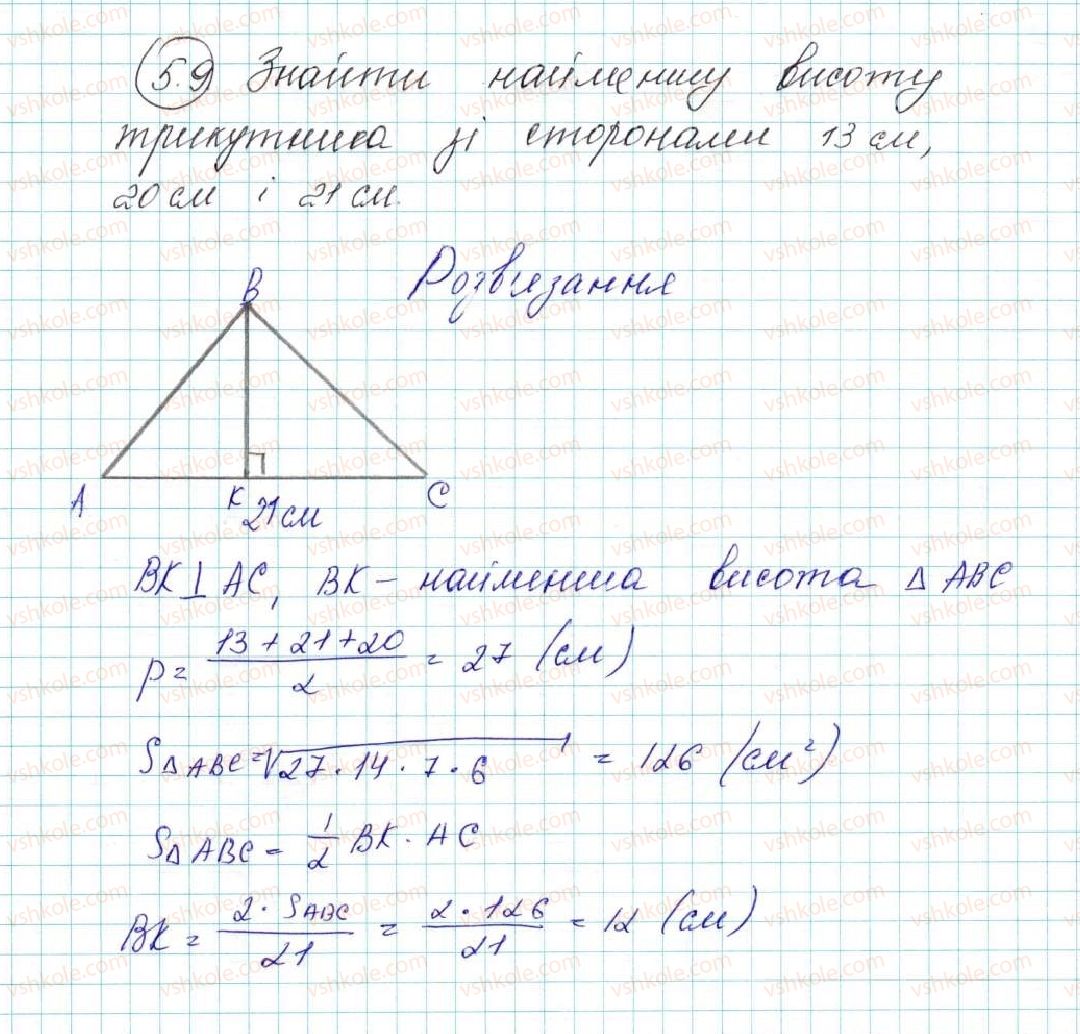 5.9 Знайти найменшу висоту
трикутника зі сторонами 13 см,
20 см і 21 см.
Розв'язання
B
A K C
21 см
BK ⊥ AC, BK – найменша висота Δ ABC
p = (13 + 21 + 20)/2 = 27 (см)
SΔ ABC = √27 · 14 · 7 · 6 = 126 (см²)
SΔ ABC = 1/2 BK · AC
BK = 2 · SABC/21 = 2 · 126/21 = 12 (см)
vshkole.com